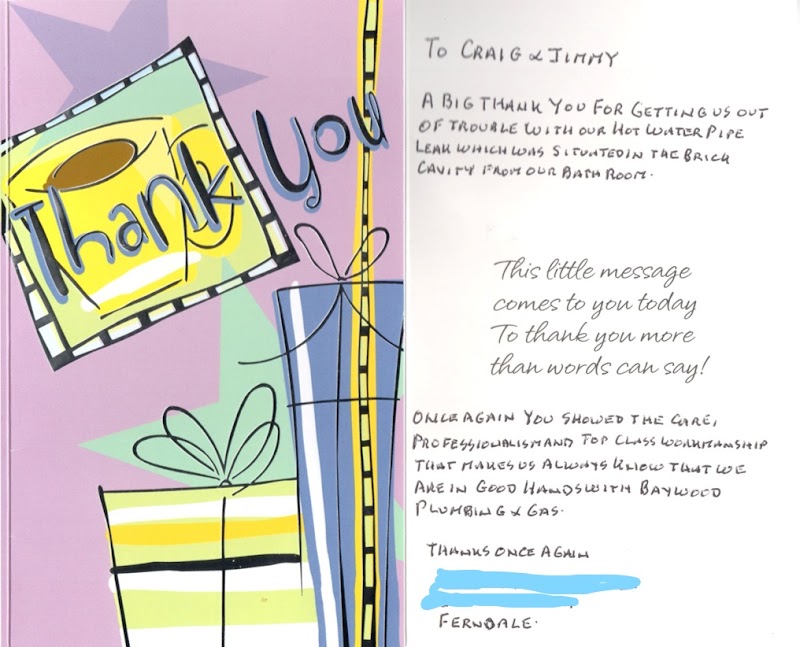 Thank You
To CRAIG & JIMMY
A BIG THANK YOU FOR GETTING US OUT
OF TROUBLE WITH OUR HOT WATER PIPE
LEAK WHICH WAS SITUATED IN THE BRICK
CAVITY FROM OUR BATH ROOM.
This little message
comes to you today
To thank you more
than words can say!
ONCE AGAIN YOU SHOWED THE CARE,
PROFESSIONALISM AND TOP CLASS WORKMANSHIP
THAT MAKES US ALWAYS KNOW THAT WE
ARE IN GOOD HANDS WITH BAYWOOD
PLUMBING & GAS.
THANKS ONCE AGAIN
FERNDALE.